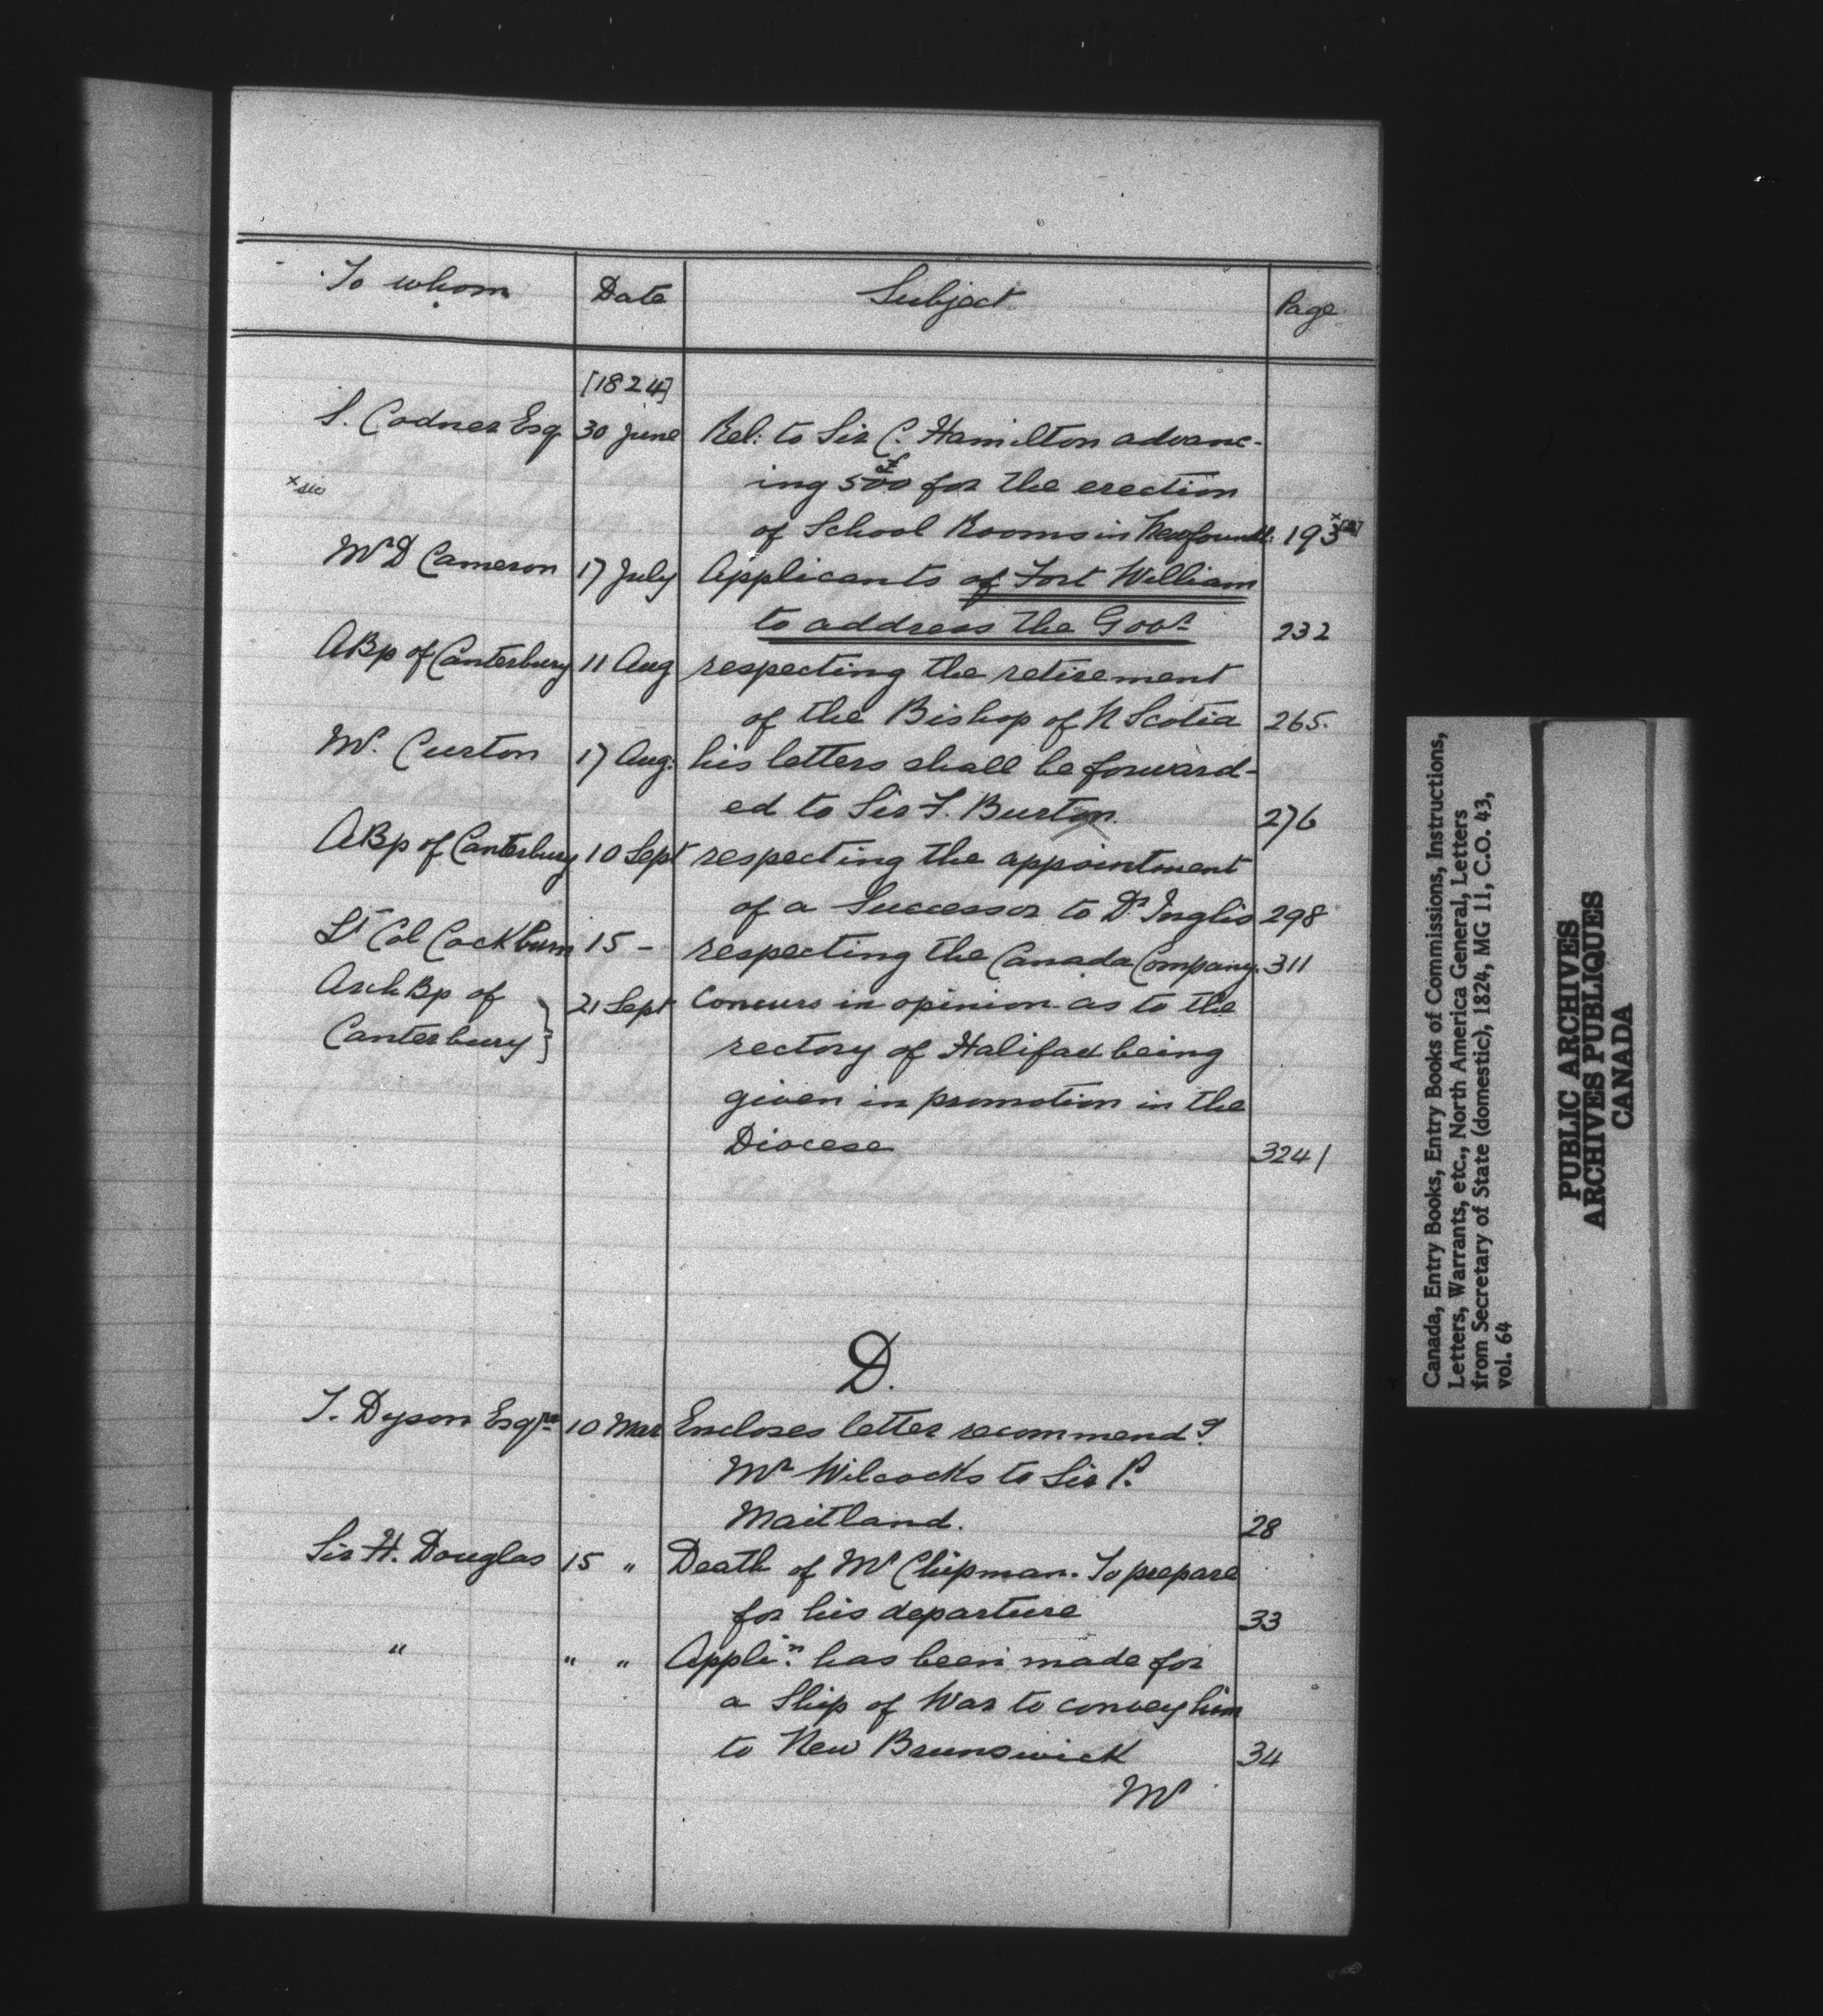 To whom Date Subject Page
[1824]
S. Codner Esq 30 June Rel: to Sir C. Hamilton advanc-
ing 500£ for the erection
x sic
of School Rooms in Newfoundl: 193 x[2]
Mr D Cameron 17 July Applicants of Fort William
to address the Govr 232
ABp of Canterbury 11 Aug respecting the retirement
of the Bishop of N Scotia 265.
Mr. Curton 17 Aug: his letters shall be forward-
ed to Sir F. Burton 276
ABp of Canterbury 10 Sept respecting the appointment
of a Successor to Dr Inglis 298
Lt Col Cockburn 15 – respecting the Canada Company. 311
Arch Bp of
Canterbury } 21 Sept Concurs in opinion as to the
rectory of Halifax being
given in promotion in the
Diocese 324 /
D.
T. Dyson Esqre 10 Mar Encloses letter recommendg
Mr Wilcocks to Sir P.
Maitland. 28
Sir H. Douglas 15 " Death of Mr Chipman. To prepare
for his departure 33
" " " Applin. has been made for
a Ship of War to convey him
to New Brunswick 34
Mr
Canada, Entry Books, Entry Books of Commissions, Instructions,
Letters, Warrants, etc., North America General, Letters
from Secretary of State (domestic), 1824, MG 11, C.O. 43,
vol. 64
PUBLIC ARCHIVES
ARCHIVES PUBLIQUES
CANADA